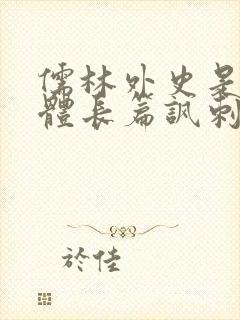 儒林外史是
體長篇諷刺
於佳